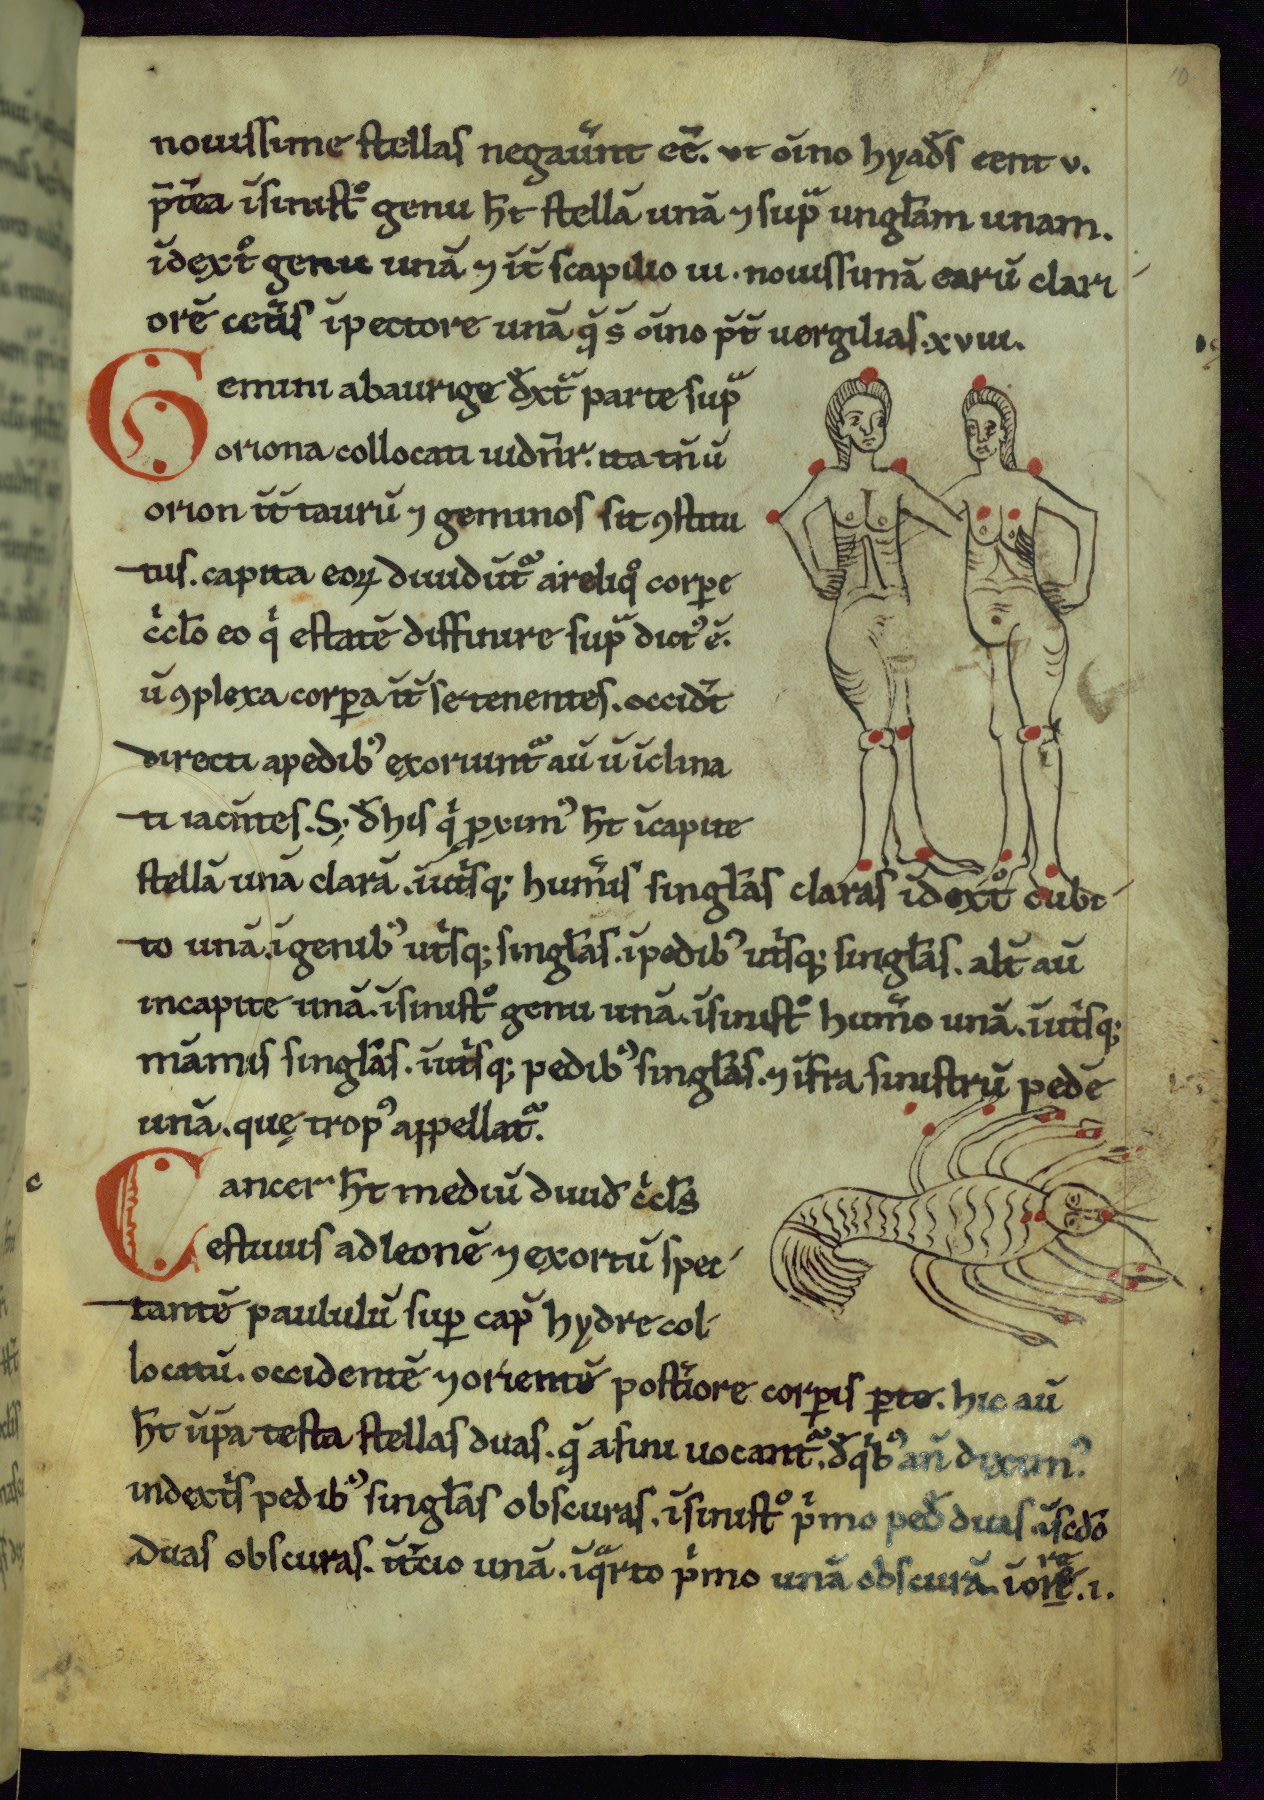 nouissime stellas negaūnt eē̄. ut oīno hyad̄s cent v.
p̄tea ī sinistº genu h̄t stellā unā ⁊ sup̄ ungl̄am unam.
ī dext̄º genu unā ⁊ īt̄ scapilio iii. nouissimā earū clari
orē cet̄is ī pectore unā q̄ s̄ oīno p̄t̄ uergilias. xviii.
Gemini ab aurige d̄xt̄ parte sup̄
oriona collocati uidn̄r. ita tn̄ ū
orion īt̄ taurū ⁊ geminos sit ꝯstitu
tus. capita eoꝝ diuidūt̄ a reliqº corꝑe
c̄cl̄o eo q̄ estatē diffinire sup̄ dictꝰ ē.
ū ꝯplexa corꝑa īt̄ se tenentes. occid̄t
directi a pedibꝰ exoriunt̄ aū ū īclina
ti iacn̄tes. S; d̄ his q̄ ꝓximꝰ h̄t ī capite
stellā unā clarā. ī ut̄sq; hum̄is singl̄as claras ī dext̄º cubi
to unā. ī genibꝰ ut̄sq; singl̄as. ī pedibꝰ ut̄sq; singl̄as. alt̄ aū
in capite unā. ī sinistº genu unā. ī sinistº hum̄o unā. ī ut̄sq;
māmis singl̄as. ī ut̄sq; pedibꝰ singl̄as. ⁊ īfra sinistrū pedē
unā. quę tropꝰ appellat̄.
Cancer h̄t mediū diuid̄ c̄cl̄s
estiuus ad leonē ⁊ exortū spec
tantē paululū suꝑ cap̄ hydre col
locatū. occidentē ⁊ orientē post̄iore corꝑis ꝑte. hic aū
h̄t ī ip̄a testa stellas duas. q̄ asini uocant̄. d̄ q̄bꝰ an̄ diximꝰ.
in dext̄is pedibꝰ singl̄as obscuras. ī sinistº p̄mo ped̄ duas. ī sc̄do
duas obscuras. ī t̄cio unā. ī q̄rto p̄mo unā obscurā. ī ore. i.